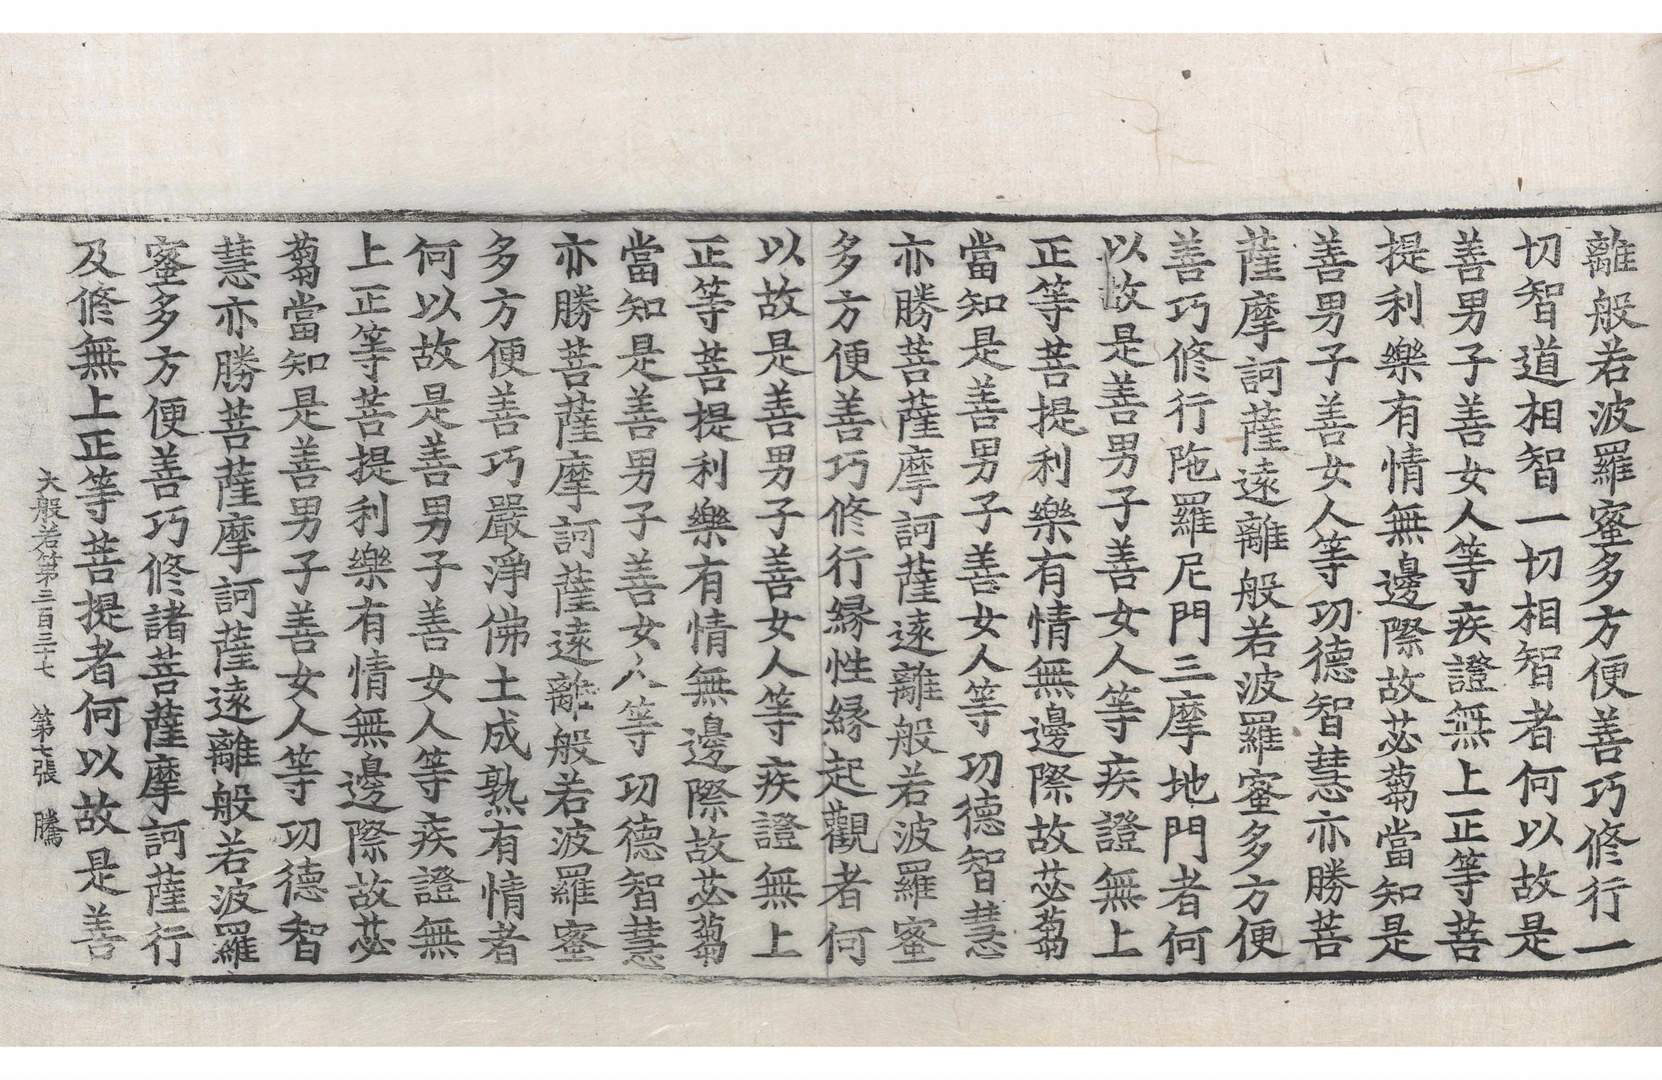 離般若波羅蜜多方便善巧修行一
切智道相智一切相智者何以故是
善男子善女人等疾證無上正等菩
提利樂有情無邊際故苾蒭當知是
善男子善女人等功德智慧亦勝菩
薩摩訶薩遠離般若波羅蜜多方便
善巧修行陁羅尼門三摩地門者何
以故是善男子善女人等疾證無上
正等菩提利樂有情無邊際故苾蒭
當知是善男子善女人等功德智慧
亦勝菩薩摩訶薩遠離般若波羅蜜
多方便善巧修行緣性緣起觀者何
以故是善男子善女人等疾證無上
正等菩提利樂有情無邊際故苾蒭
當知是善男子善女人等功德智慧
亦勝菩薩摩訶薩遠離般若波羅蜜
多方便善巧嚴淨佛土成熟有情者
何以故是善男子善女人等疾證無
上正等菩提利樂有情無邊際故苾
蒭當知是善男子善女人等功德智
慧亦勝菩薩摩訶薩遠離般若波羅
蜜多方便善巧修諸菩薩摩訶薩行
及修無上正等菩提者何以故是善
大般若第三百三十七 第七張 騰